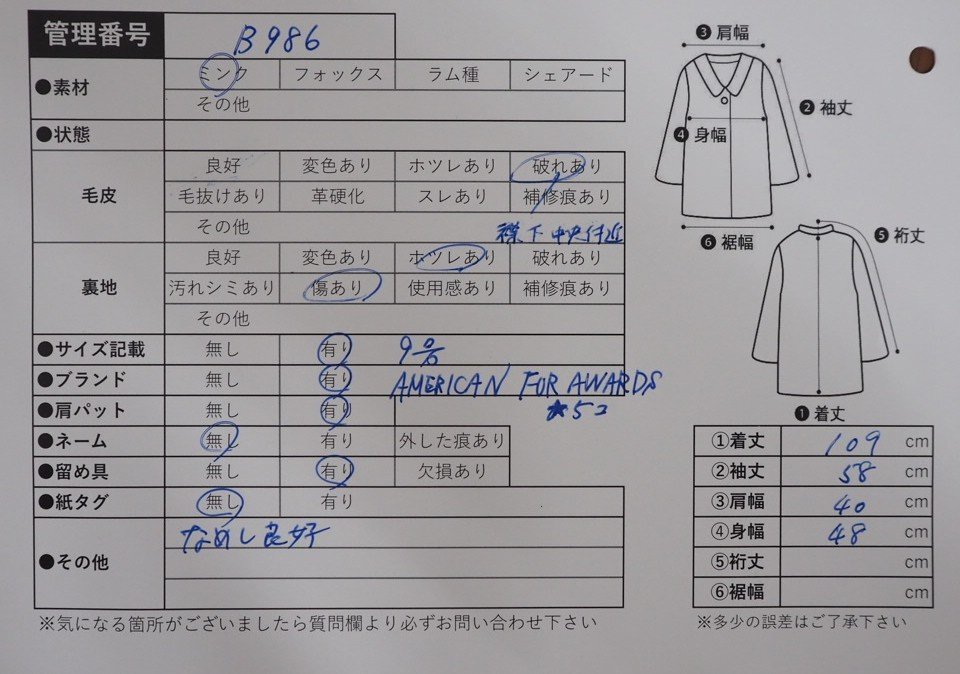 管理番号 B986
●素材 ミンク フォックス ラム種 シェアード
その他
●状態
毛皮 良好 変色あり ホツレあり 破れあり
毛抜けあり 革硬化 スレあり 補修痕あり
その他 襟下中央付近
裏地 良好 変色あり ホツレあり 破れあり
汚れシミあり 傷あり 使用感あり 補修痕あり
その他
●サイズ記載 無し 有り 9号
●ブランド 無し 有り AMERICAN FUR AWARDS
●肩パット 無し 有り ★5コ
●ネーム 無し 有り 外した痕あり
●留め具 無し 有り 欠損あり
●紙タグ 無し 有り
●その他 なめし良好
※気になる箇所がございましたら質問欄より必ずお問い合わせ下さい
❸肩幅
❷袖丈
❹身幅
❻裄幅
❺裄丈
❶着丈
①着丈 109 cm
②袖丈 58 cm
③肩幅 40 cm
④身幅 48 cm
⑤裄丈 cm
⑥裾幅 cm
※多少の誤差はご了承下さい